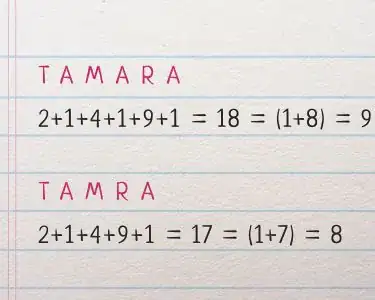 TAMARA
2+1+4+1+9+1 = 18 = (1+8) = 9
TAMRA
2+1+4+9+1 = 17 = (1+7) = 8